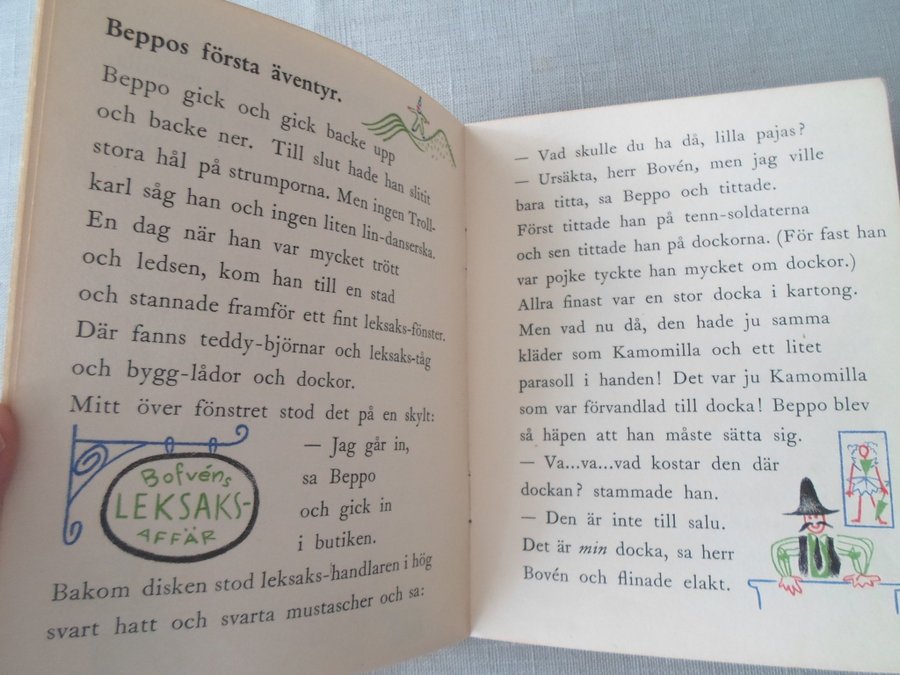 Beppos första äventyr.
Beppo gick och gick backe upp
och backe ner. Till slut hade han slitit
stora hål på strumporna. Men ingen Troll-
karl såg han och ingen liten lin-danserska.
En dag när han var mycket trött
och ledsen, kom han till en stad
och stannade framför ett fint leksaks-fönster.
Där fanns teddy-björnar och leksaks-tåg
och bygg-lådor och dockor.
Mitt över fönstret stod det på en skylt:
Bofvéns
LEKSAKS-
AFFÄR
— Jag går in,
sa Beppo
och gick in
i butiken.
Bakom disken stod leksaks-handlaren i hög
svart hatt och svarta mustascher och sa:
— Vad skulle du ha då, lilla pajas?
— Ursäkta, herr Bovén, men jag ville
bara titta, sa Beppo och tittade.
Först tittade han på tenn-soldaterna
och sen tittade han på dockorna. (För fast han
var pojke tyckte han mycket om dockor.)
Allra finast var en stor docka i kartong.
Men vad nu då, den hade ju samma
kläder som Kamomilla och ett litet
parasoll i handen! Det var ju Kamomilla
som var förvandlad till docka! Beppo blev
så häpen att han måste sätta sig.
— Va...va...vad kostar den där
dockan? stammade han.
— Den är inte till salu.
Det är min docka, sa herr
Bovén och flinade elakt.